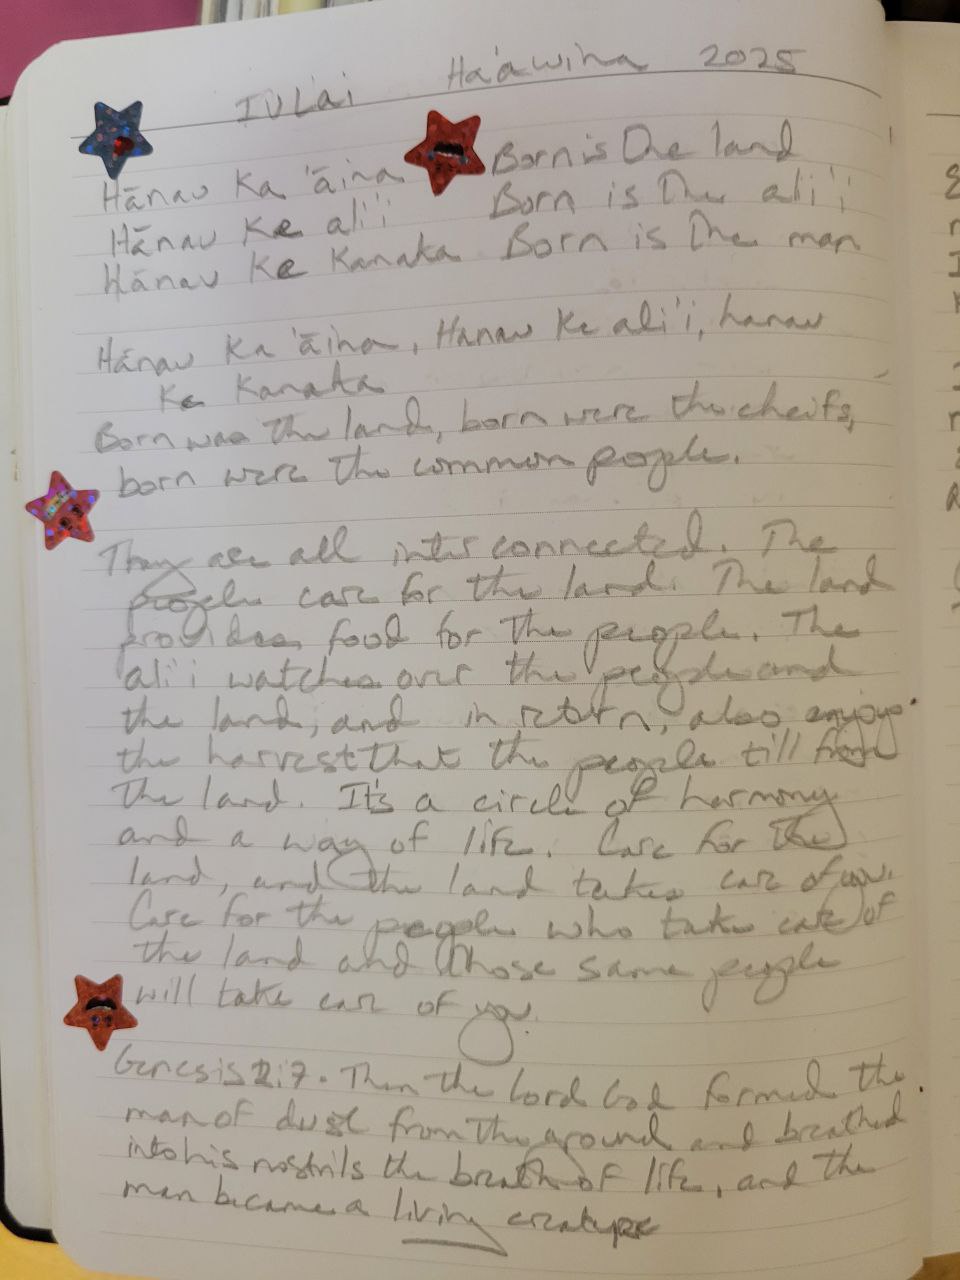 IULai Ha'awina 2025
Hānau Ka 'āina Born is The land
Hānau Ke ali'i Born is The ali'i
Hānau Ke Kanaka Born is The man
Hānau Ka 'āina, Hanau Ke ali'i, hanau
Ke Kanaka
Born was the land, born were the cheifs,
born were the common people.
They are all inter connected. The
people care for the land. The land
provides food for the people. The
ali'i watches over the people and
the land, and in return, also enjoys
the harvest that the people till from
the land. It's a circle of harmony
and a way of life. Care for the
land, and the land takes care of you.
Care for the people who take care of
the land and those same people
will take care of you.
Genesis 2:7. Then the Lord God formed the
man of dust from the ground and breathed
into his nostrils the breath of life, and the
man became a living creature